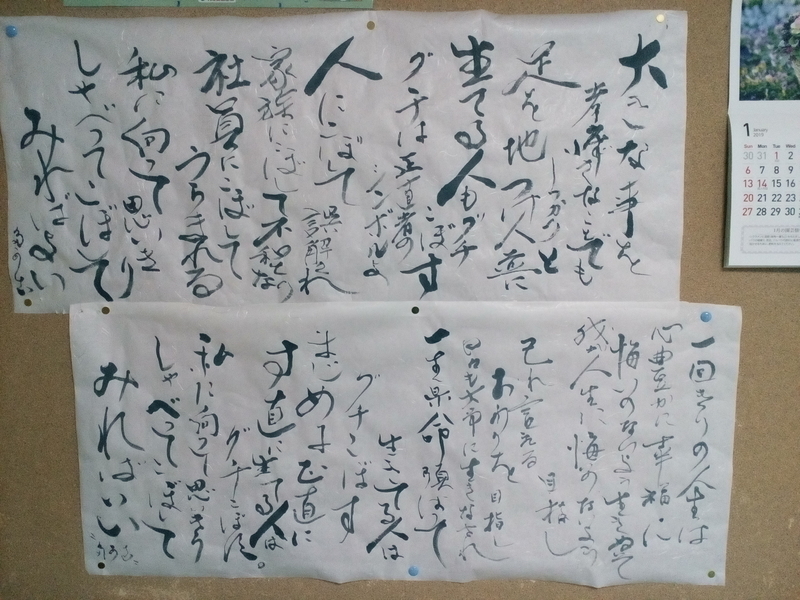 大きな事を
なことでも
しっかりと
足を地につけ人並に
生てる人もグチ
こぼす
グチは正直者の
シンボルよ
人にこぼして
誤解され
家族にこぼして不和
社員にこぼして
うらぎれる
私に向って思いきり
しゃべってこぼして
みればいい
一回きりの人生は
心豊かに幸福に
悔いのないよう生きぬいて
我が人生に悔のないよう
目指し
己れ言える
おわりを目指し
日々大切に生きなされ
一生懸命頑張って
生きてる人は
グチこぼす
まじめに正直に
す直に生てる人は
グチこぼす。
私に向って思いきり
しゃべってこぼして
みればいい
1 January
2019
Sun Mon Tue Wed
30 31 1 2
6 7 8 9
13 14 15 16
20 21 22 23
27 28 29 30